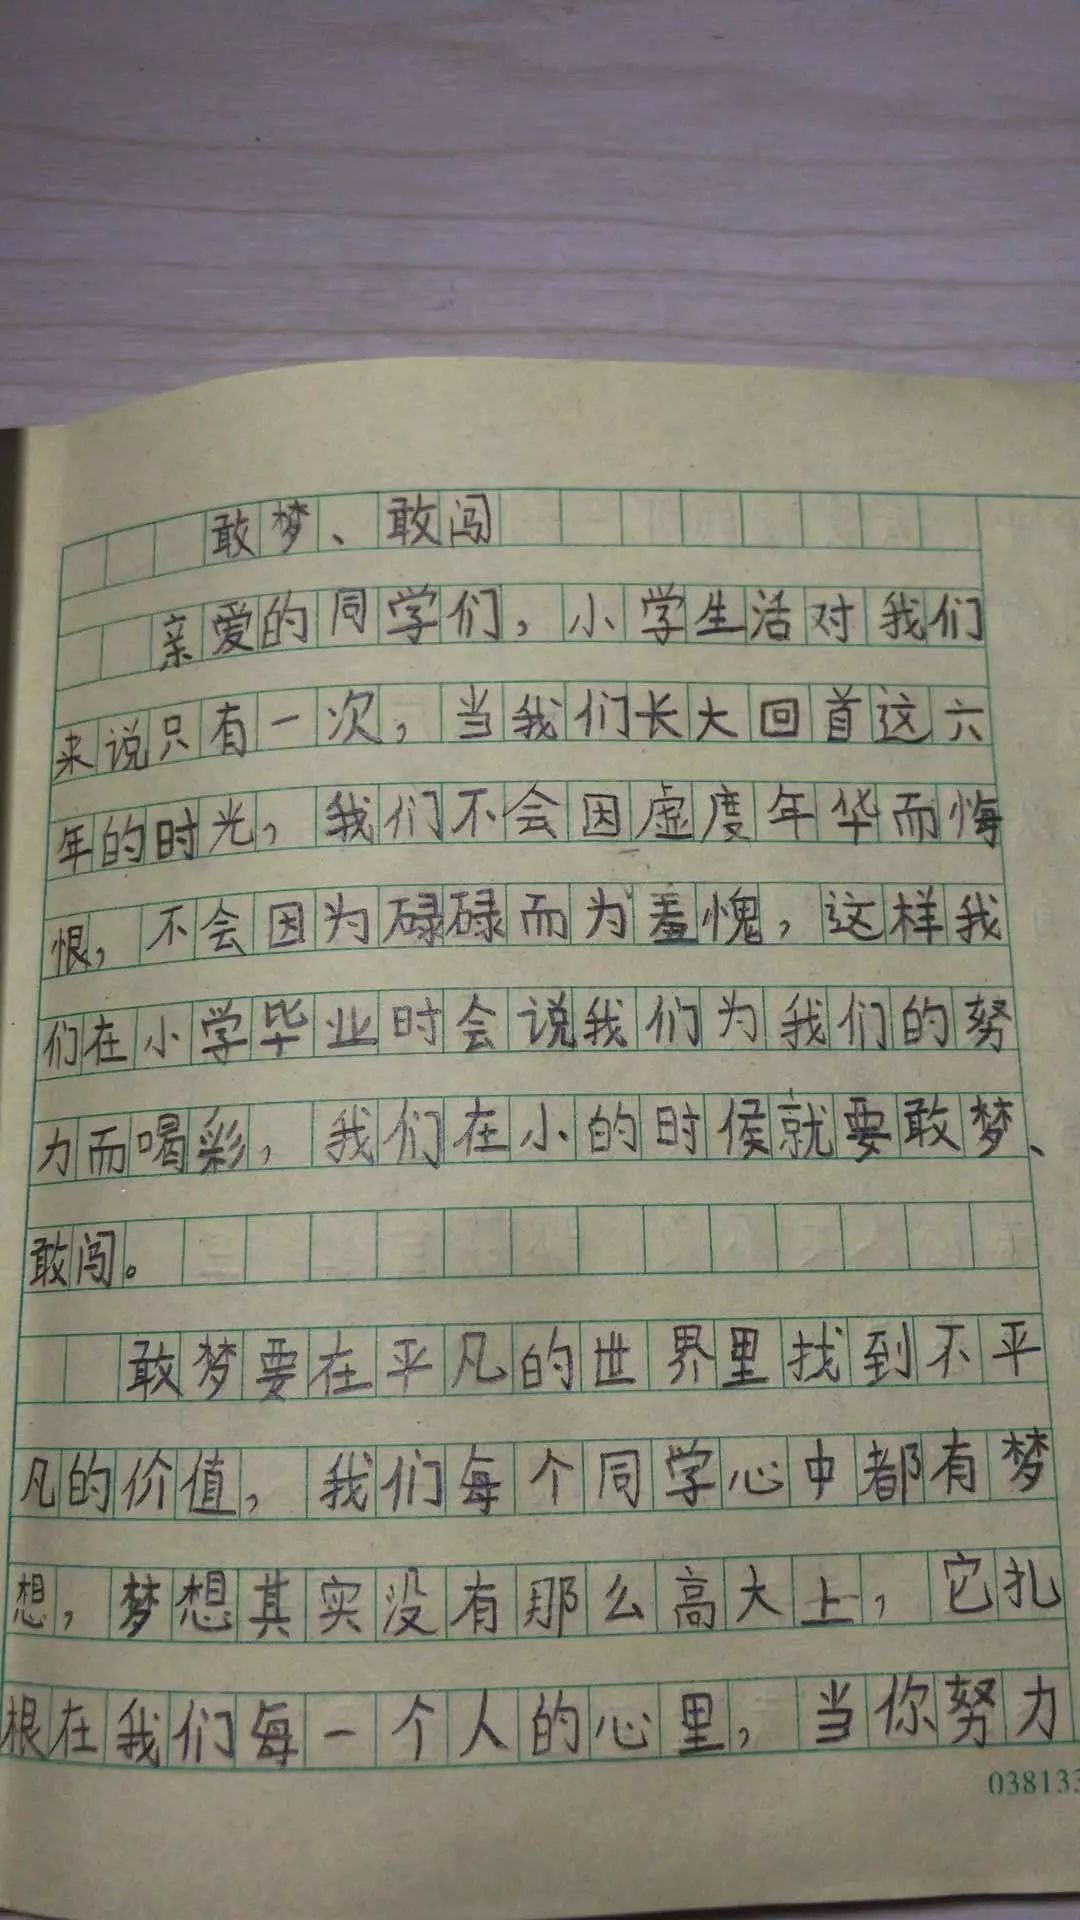 敢梦、敢闯
亲爱的同学们，小学生活对我们
来说只有一次，当我们长大回首这六
年的时光，我们不会因虚度年华而悔
恨，不会因为碌碌而为羞愧，这样我
们在小学毕业时会说我们为我们的努
力而喝彩，我们在小的时候就要敢梦、
敢闯。
敢梦要在平凡的世界里找到不平
凡的价值，我们每个同学心中都有梦
想，梦想其实没有那么高大上，它扎
根在我们每一个人的心里，当你努力
038133